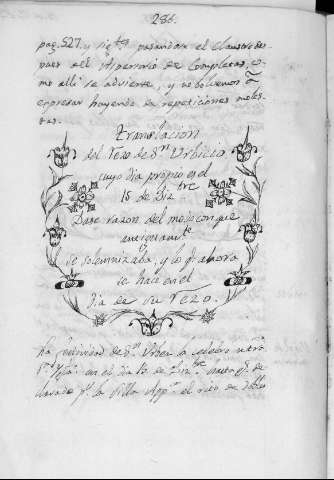 286.
pag. 527. y sig.tes pasandan el claustro des-
pues del Aspersorio de Completas, co-
mo alli se advierte, y no bolvemos â
expresar huyendo de repeticiones moles-
tas.
Translacion
del Rezo de S.n Urbicio
cuyo dia propio es el
15 de Diz.bre
Dase razon del modo con que
antiguam.te
se solemnizaba, y lo q.e ahora
se hace en el
Dia de su Rezo.
la Translacion de S.n Urbez la celebra ntra
en el dia 15 de Diz.bre hasta q.e de
la Villa App.ca el rito de dobles